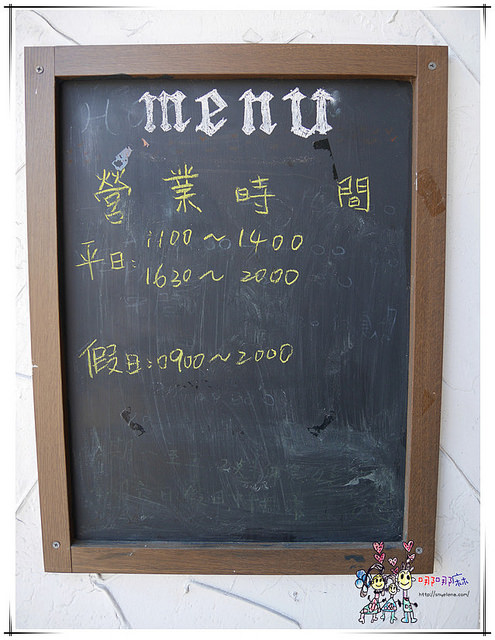 menu
營業時間
平日:1100~1400
1630~2000
假日:0900~2000